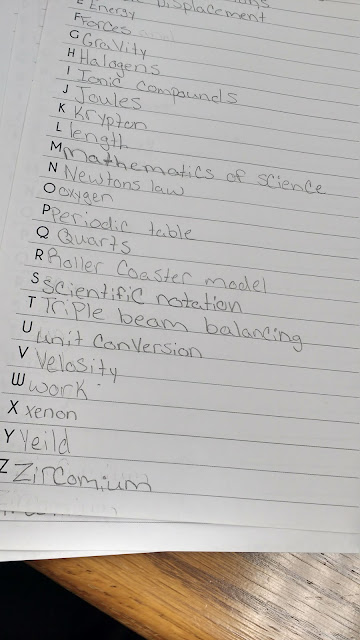 Displacement
E Energy
F Forces
G Gravity
H Halogens
I Ionic compounds
J Joules
K Krypton
L length
M mathematics of science
N Newtons law
O oxygen
P Periodic table
Q Quarts
R Roller Coaster model
S Scientific notation
T Triple beam balancing
U unit conversion
V Velosity
W work
X xenon
Y Yeild
Z Zircomium